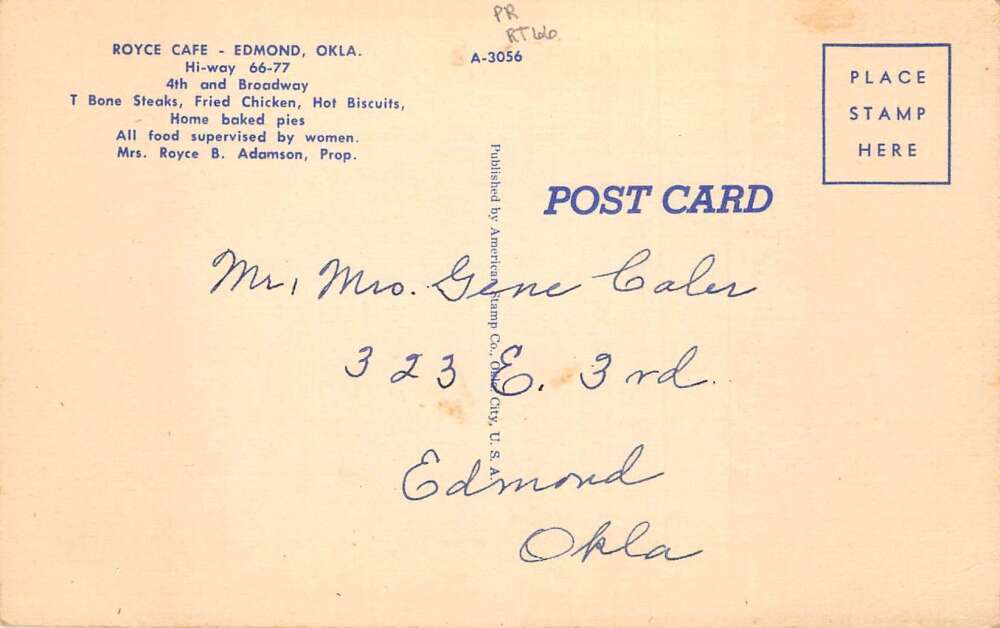 PR
RT66
ROYCE CAFE - EDMOND, OKLA.
Hi-way 66-77
4th and Broadway
T Bone Steaks, Fried Chicken, Hot Biscuits,
Home baked pies
All food supervised by women.
Mrs. Royce B. Adamson, Prop.
A-3056
PLACE
STAMP
HERE
Published by American Stamp Co., Okla. City, U. S. A.
POST CARD
Mr, Mrs. Gene Caler
323 E. 3rd.
Edmond
Okla